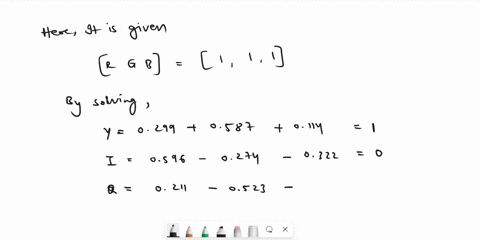 Here, It is given
[R G B] = [1, 1, 1]
By solving,
Y = 0.299 + 0.587 + 0.114 = 1
I = 0.596 - 0.274 - 0.322 = 0
Q = 0.211 - 0.523 -